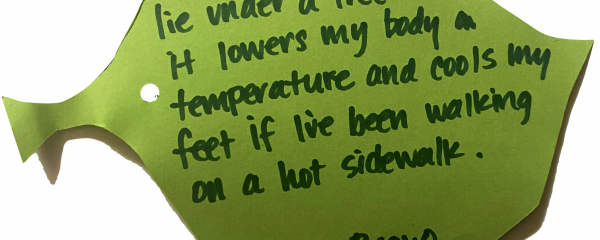 lie under a tree
it lowers my body
temperature and cools my
feet if I've been walking
on a hot sidewalk.